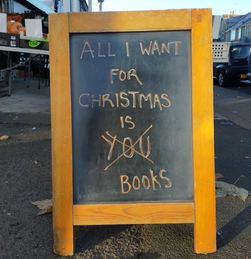 ALL I WANT
FOR
CHRISTMAS
IS
YOU
BOOKS